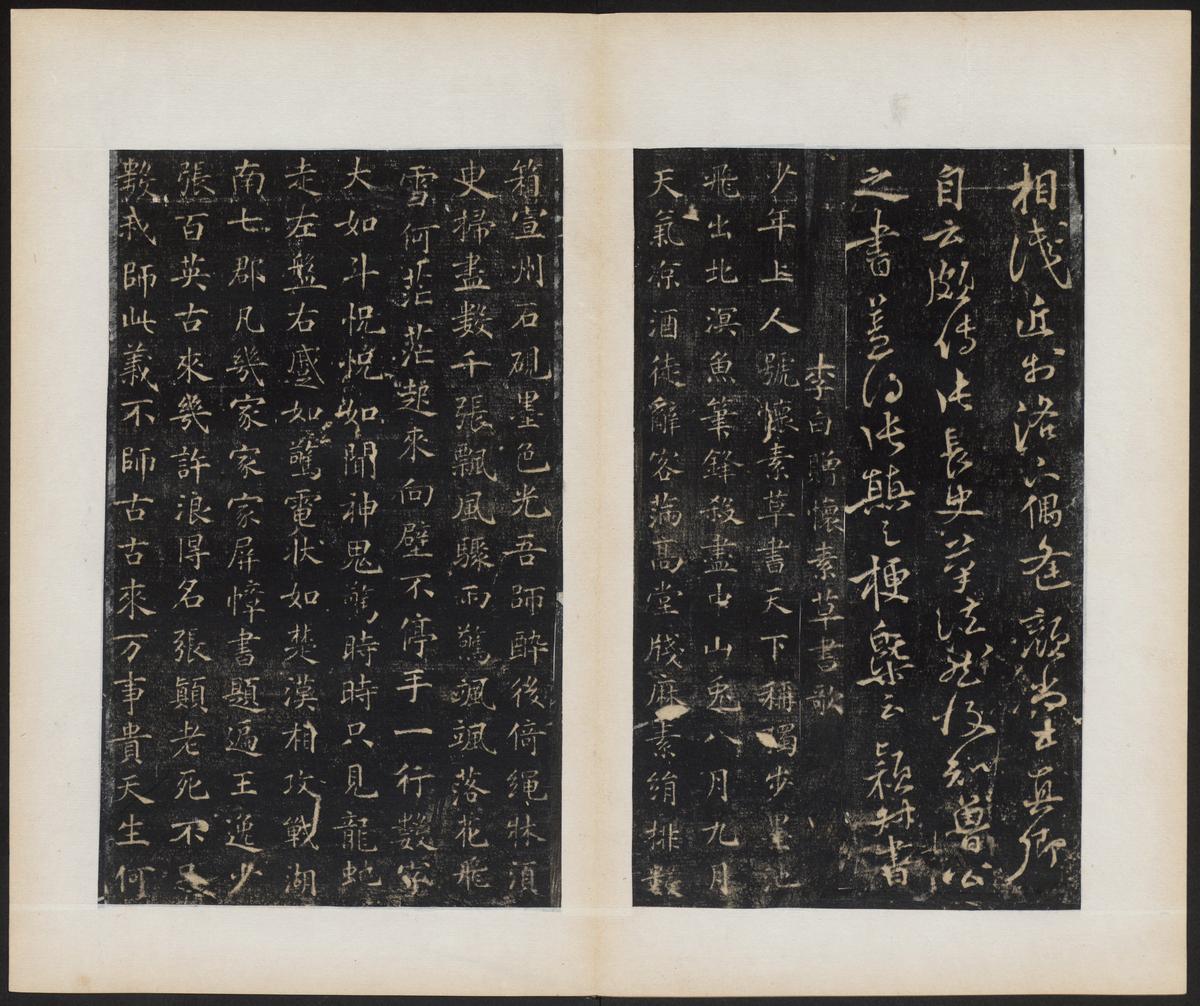 相浅近於洛下偶逢顏尚书真卿
自云頗传张長史草法然後知魯公
之書蓋得张顛之梗槩云穎叔書
李白贈懷素草書歌
少年上人號懷素草書天下稱獨步墨池
飛出北溟魚筆鋒殺盡中山兔八月九月
天氣凉酒徒辭客蒲高堂牋麻素絹排數
箱宣州石硯墨色光吾師醉後倚繩牀須
臾掃盡數千張飄風驟雨驚颯颯落花飛
雪何茫茫起來向壁不停手一行數字
大如斗怳怳如聞神鬼驚時時只見龍虵
走左盤右蹙如驚電狀如楚漢相攻戰湖
南七郡凡幾家家家屏幛書題遍王逸少
張百英古來幾許浪得名張顛老死不足
數我師此義不師古古來万事貴天生何